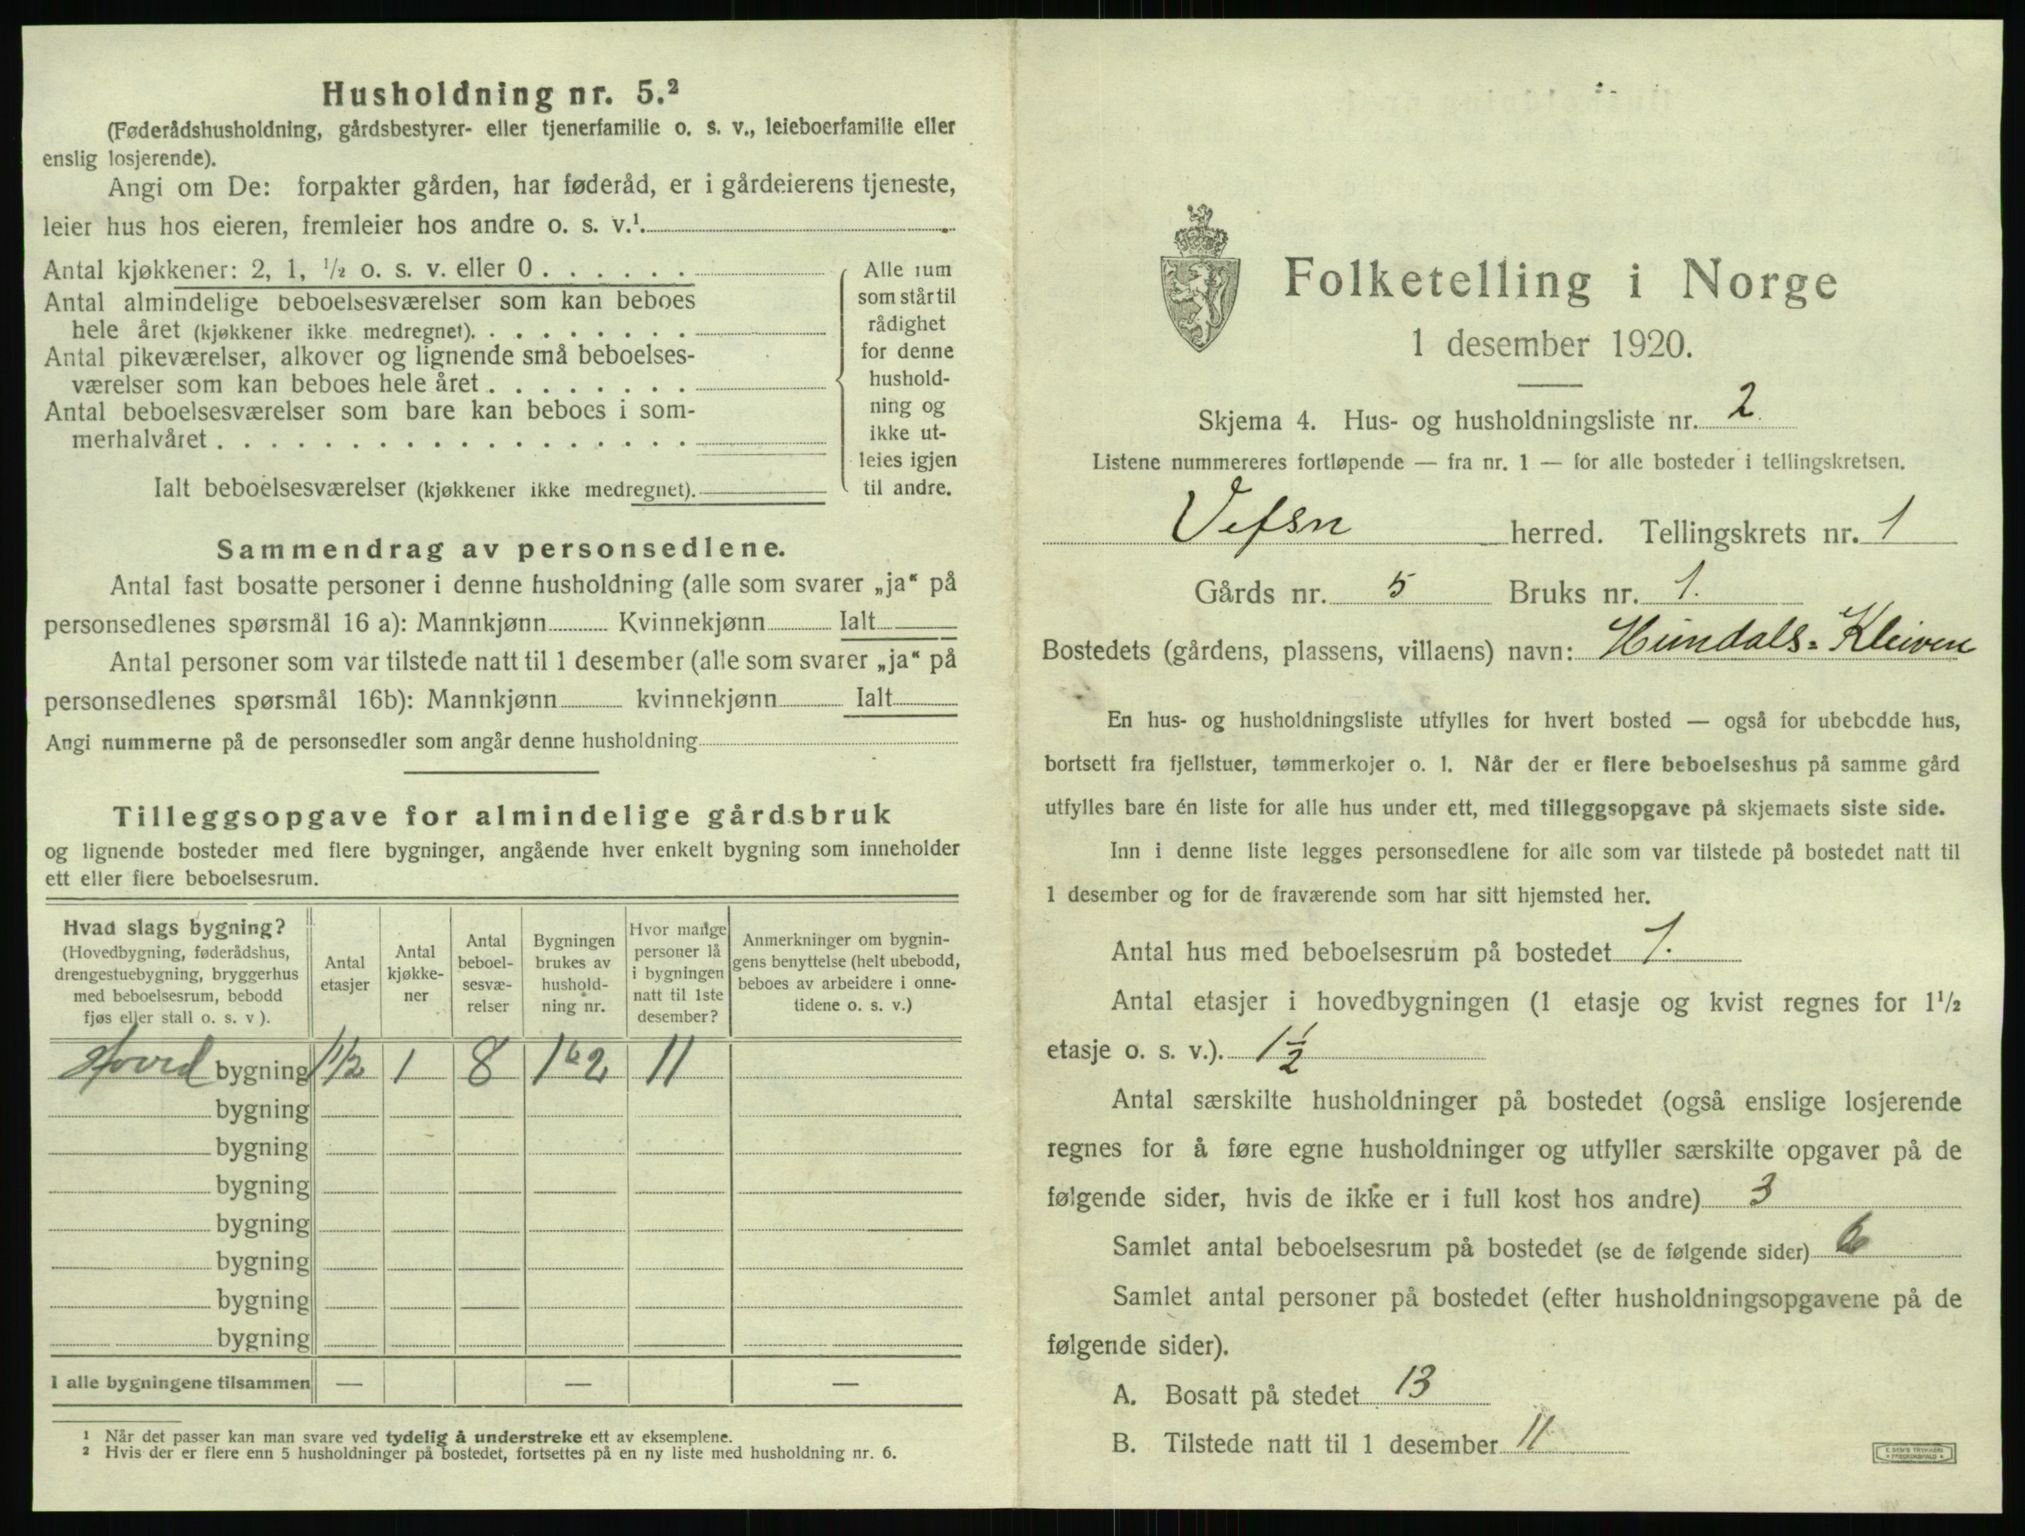 Husholdning nr. 5.²
(Føderådshusholdning, gårdsbestyrer- eller tjenerfamilie o. s. v., leieboerfamilie eller
enslig losjerende).
Angi om De: forpakter gården, har føderåd, er i gårdeierens tjeneste,
leier hus hos eieren, fremleier hos andre o. s. v.¹.
Antal kjøkkener: 2, 1, ½ o. s. v. eller 0 . . . . . .
Antal almindelige beboelsesværelser som kan beboes
hele året (kjøkkener ikke medregnet). . . . . . . . .
Antal pikeværelser, alkover og lignende små beboelses-
værelser som kan beboes hele året . . . . . . . .
Antal beboelsesværelser som bare kan beboes i som-
merhalvåret . . . . . . . . . . . . . . . . . .
Ialt beboelsesværelser (kjøkkener ikke medregnet).
Alle rum
som står til
rådighet
for denne
hushold-
ning og
ikke ut-
leies igjen
til andre.
Sammendrag av personsedlene.
Antal fast bosatte personer i denne husholdning (alle som svarer „ja“ på
personsedlenes spørsmål 16 a): Mannkjønn Kvinnekjønn Ialt
Antal personer som var tilstede natt til 1 desember (alle som svarer „ja“ på
personsedlenes spørsmål 16b): Mannkjønn kvinnekjønn Ialt
Angi nummerne på de personsedler som angår denne husholdning
Tilleggsopgave for almindelige gårdsbruk
og lignende bosteder med flere bygninger, angående hver enkelt bygning som inneholder
ett eller flere beboelsesrum.
Hvad slags bygning?
(Hovedbygning, føderådshus,
drengestuebygning, bryggerhus
med beboelsesrum, bebodd
fjøs eller stall o. s. v ).
Antal
etasjer
Antal
kjøkke-
ner
Antal
beboel-
sesvæ-
relser
Bygningen
brukes av
hushold-
ning nr.
Hvor mange
personer lå
i bygningen
natt til 1ste
desember?
Anmerkninger om bygnin-
gens benyttelse (helt ubebodd,
beboes av arbeidere i onne-
tidene o. s. v.)
Hoved bygning 1½ 1 8 11
bygning
bygning
bygning
bygning
bygning
bygning
bygning
I alle bygningene tilsammen — — —
¹ Når det passer kan man svare ved tydelig å understreke ett av eksemplene.
² Hvis der er flere enn 5 husholdninger på bostedet, fortsettes på en ny liste med husholdning nr. 6.
Folketelling i Norge
1 desember 1920.
Skjema 4. Hus- og husholdningsliste nr. 2
Listene nummereres fortløpende — fra nr. 1 — for alle bosteder i tellingskretsen.
Vefsn herred. Tellingskrets nr. 1
Gårds nr. 5 Bruks nr. 1.
Bostedets (gårdens, plassens, villaens) navn: Hundals-Kleiven
En hus- og husholdningsliste utfylles for hvert bosted — også for ubebodde hus,
bortsett fra fjellstuer, tømmerkojer o. l. Når der er flere beboelseshus på samme gård
utfylles bare én liste for alle hus under ett, med tilleggsopgave på skjemaets siste side.
Inn i denne liste legges personsedlene for alle som var tilstede på bostedet natt til
1 desember og for de fraværende som har sitt hjemsted her.
Antal hus med beboelsesrum på bostedet 1.
Antal etasjer i hovedbygningen (1 etasje og kvist regnes for 1½
etasje o. s. v.). 1½
Antal særskilte husholdninger på bostedet (også enslige losjerende
regnes for å føre egne husholdninger og utfyller særskilte opgaver på de
følgende sider, hvis de ikke er i full kost hos andre) 3
Samlet antal beboelsesrum på bostedet (se de følgende sider)
Samlet antal personer på bostedet (efter husholdningsopgavene på de
følgende sider).
A. Bosatt på stedet 13
B. Tilstede natt til 1 desember 11